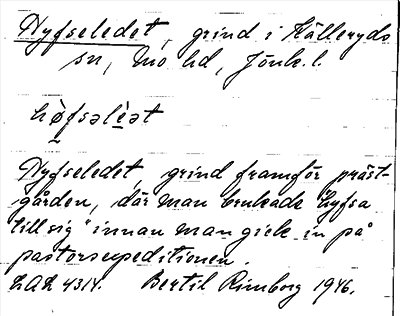 Nyfseledet, grind i Källeryds
sn, Mo hd, Jönk. l.
nø̀fsəlèət
Nyfseledet, grind framför präst-
gården, där man brukade "nyfsa
till sig" innan man gick in på
pastorsexpeditionen.
LAL 4314. Bertil Rimborg 1946.